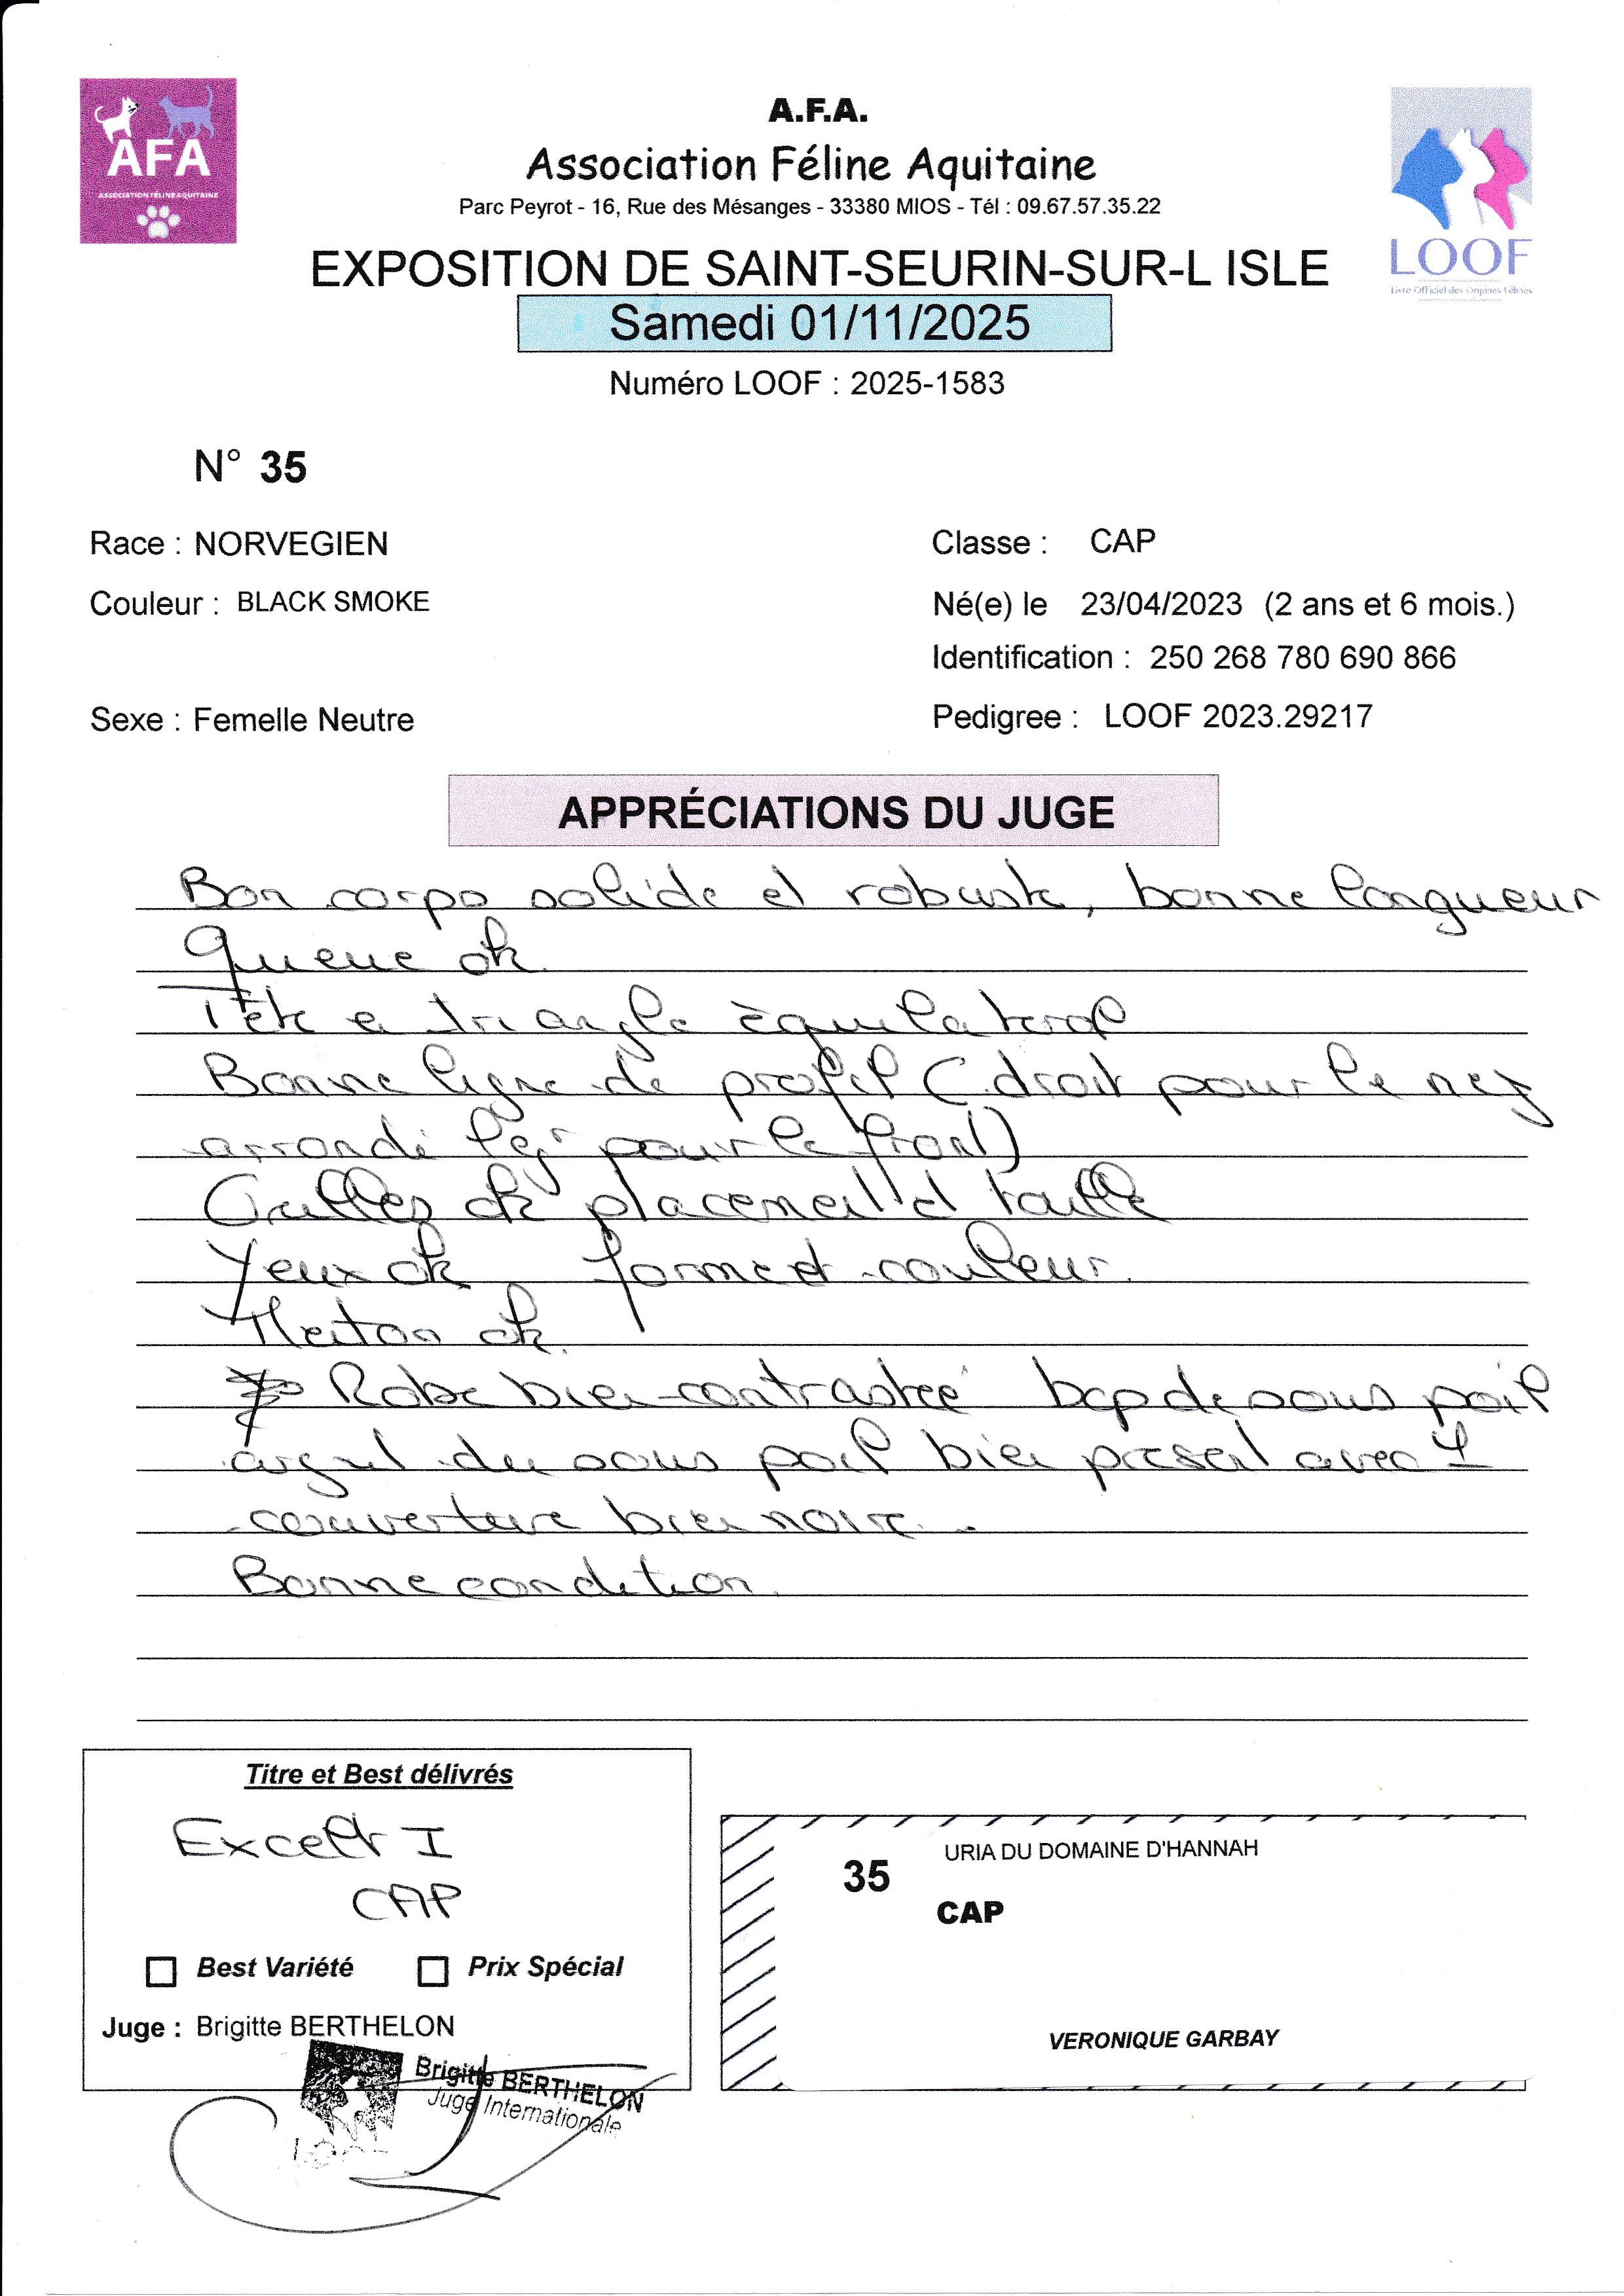 AFA
ASSOCIATION FÉLINE AQUITAINE
A.F.A.
Association Féline Aquitaine
Parc Peyrot - 16, Rue des Mésanges - 33380 MIOS - Tél : 09.67.57.35.22
LOOF
Livre Officiel des Origines Félines
EXPOSITION DE SAINT-SEURIN-SUR-L ISLE
Samedi 01/11/2025
Numéro LOOF : 2025-1583
N° 35
Race : NORVEGIEN
Classe : CAP
Couleur : BLACK SMOKE
Né(e) le 23/04/2023 (2 ans et 6 mois.)
Identification : 250 268 780 690 866
Sexe : Femelle Neutre
Pedigree : LOOF 2023.29217
APPRÉCIATIONS DU JUGE
Bon corps solide et robuste, bonne longueur
Queue ok
Tête e triangle équilateral
Bonne ligne de profil (droit pour le nez
arrondi légr pour le front)
Oreilles ok placement et taille
Yeux ok forme et couleur.
Menton ok.
Robe bien contrastée bcp de sous poil
argent du sous poil bien présent avec 1
couverture bien noire.
Bonne condition.
Titre et Best délivrés
Excellt I
CAP
Best Variété Prix Spécial
Juge : Brigitte BERTHELON
Brigitte BERTHELON
Juge Internationale
35
URIA DU DOMAINE D'HANNAH
CAP
VERONIQUE GARBAY